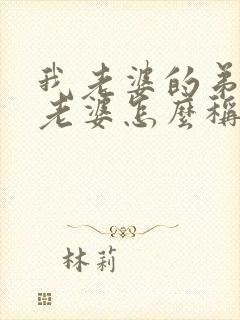 我老婆的弟
老婆怎麼稱
林莉